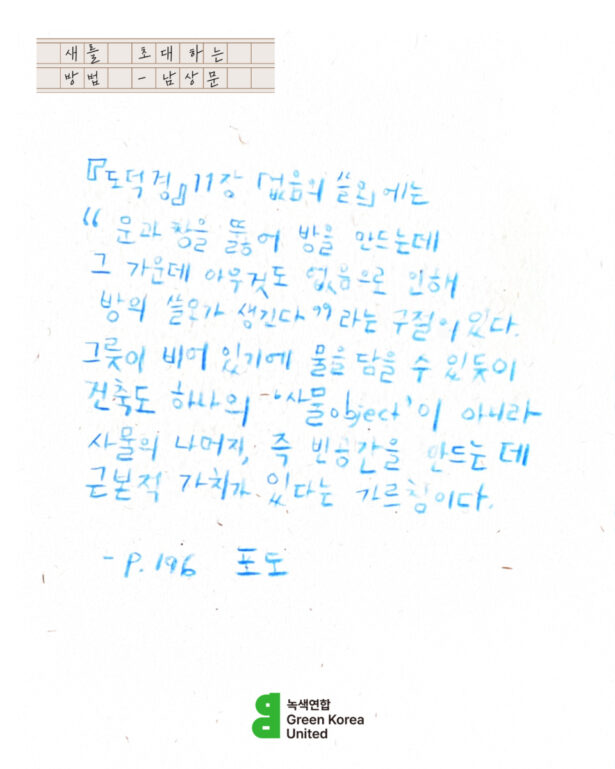 새를 초대하는
방법 - 남상문
『도덕경』 11장 「없음의 쓸모」에는
“문과 창을 뚫어 방을 만드는데
그 가운데 아무것도 없음으로 인해
방의 쓸모가 생긴다”라는 구절이 있다.
그릇이 비어 있기에 물을 담을 수 있듯이
건축도 하나의 '사물object'이 아니라
사물의 나머지, 즉 빈공간을 만드는 데
근본적 가치가 있다는 가르침이다.
- P. 196 포도
녹색연합
Green Korea
United